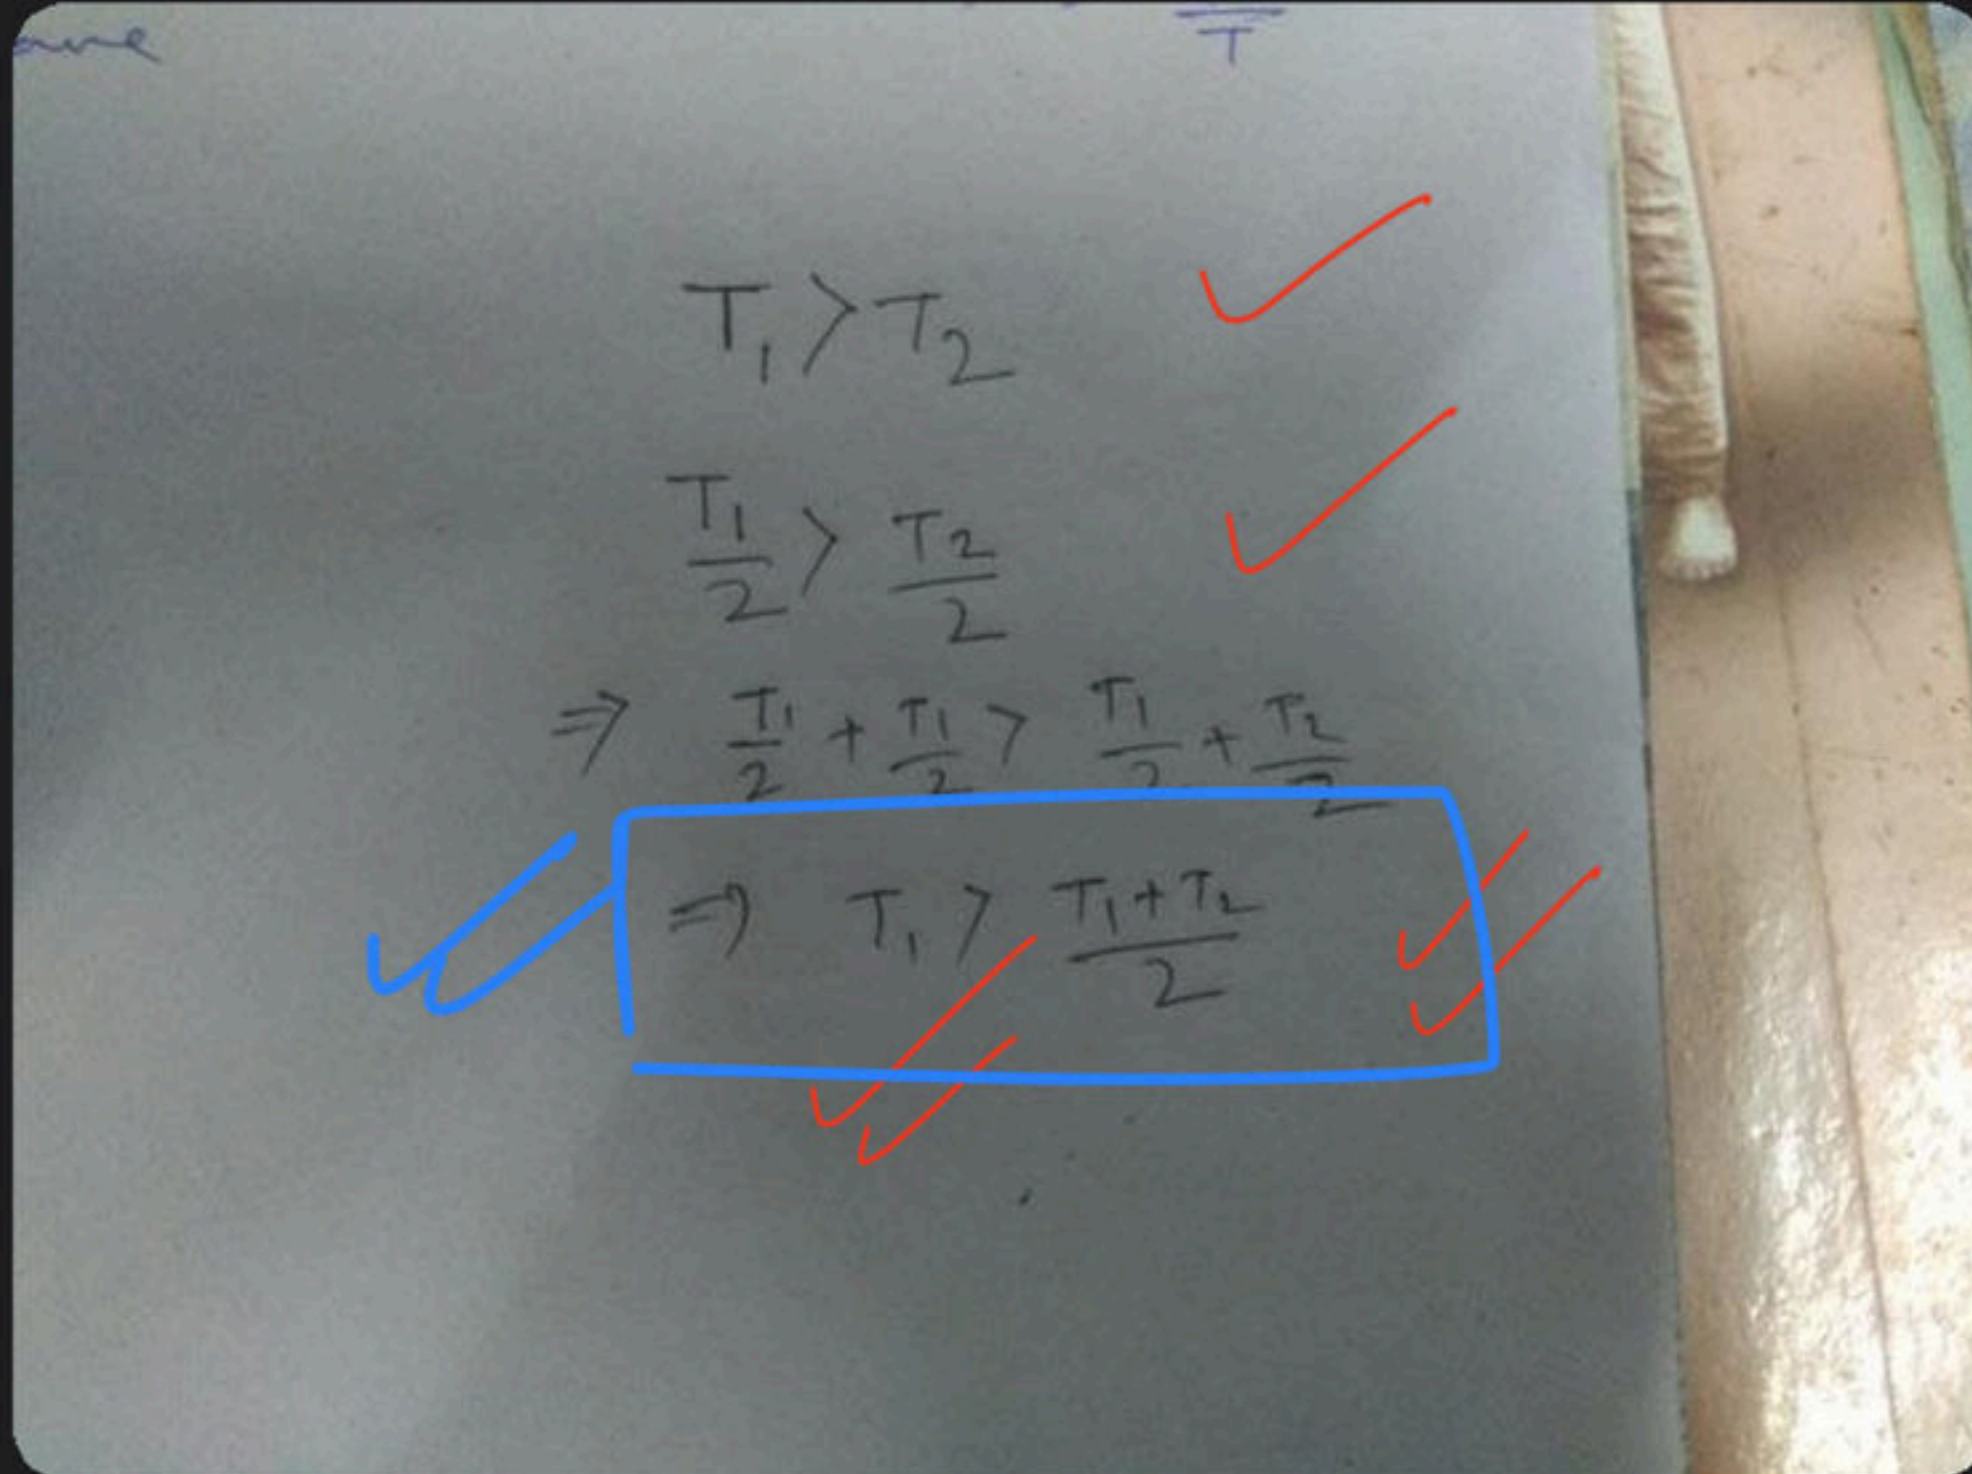 T
T₁ > T₂
T₁/2 > T₂/2
⇒ T₁/2 + T₁/2 > T₁/2 + T₂/2
⇒ T₁ > (T₁+T₂)/2